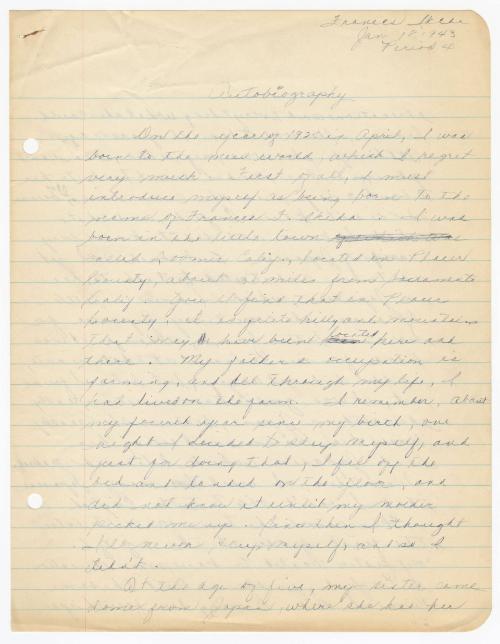 Frances Ikeda
Jan 18, 1943
Period 4
Autobiography
On the year of 1925 in April, I was
born to the new world, which I regret
very much. First of all, I must
introduce myself as being born to the
name of Frances F. Ikeda. I was
born in the little town
called Loomis Calif., located in Placer
County, about miles from Sacramento
Calif. You'll find that in Placer
County it is quite hilly and mountains
that may have been located here and
there. My father's occupation is
farming, and all through my life, I
had lived on the farm. I remember, about
my fourth year since my birth, one
night I decided to sleep myself, and
just for doing that, I fell off the
bed and landed on the floor, and
did not know it until my mother
picked me up. Since then I thought
I'll never sleep myself, and so I
didn't.
At the age of five, my sister came
home from Japan, where she has been